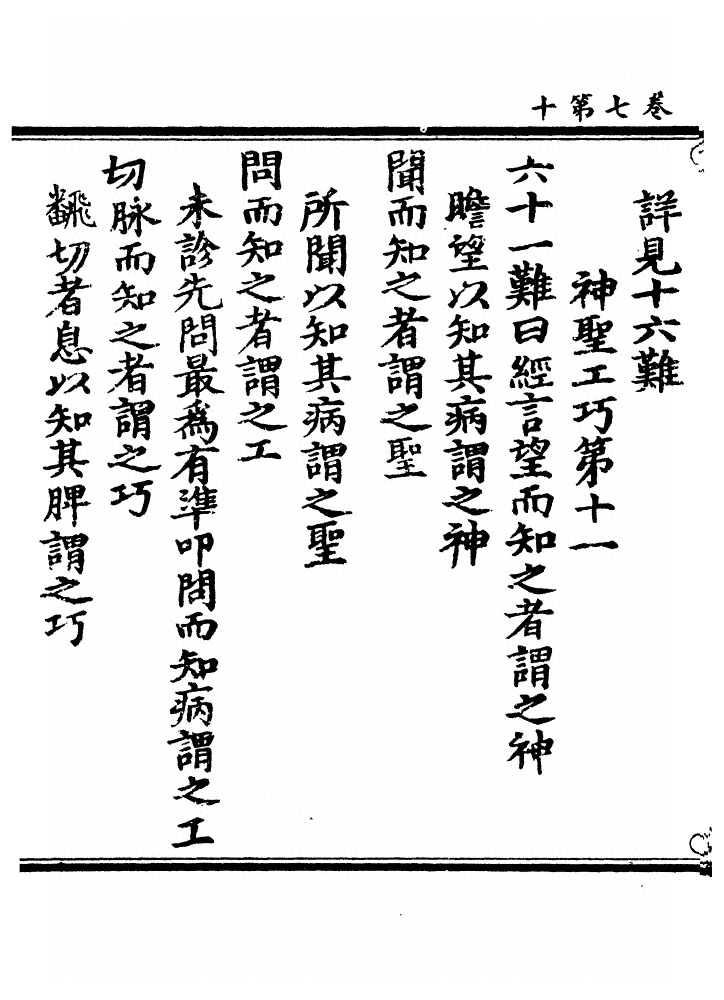 卷七第十
詳見十六難
神聖工巧第十一
六十一難曰經言望而知之者謂之神
瞻望以知其病謂之神
聞而知之者謂之聖
所聞以知其病謂之聖
問而知之者謂之工
未診先問最爲有準叩問而知病謂之工
切脉而知之者謂之巧
飜切者息以知其脾謂之巧